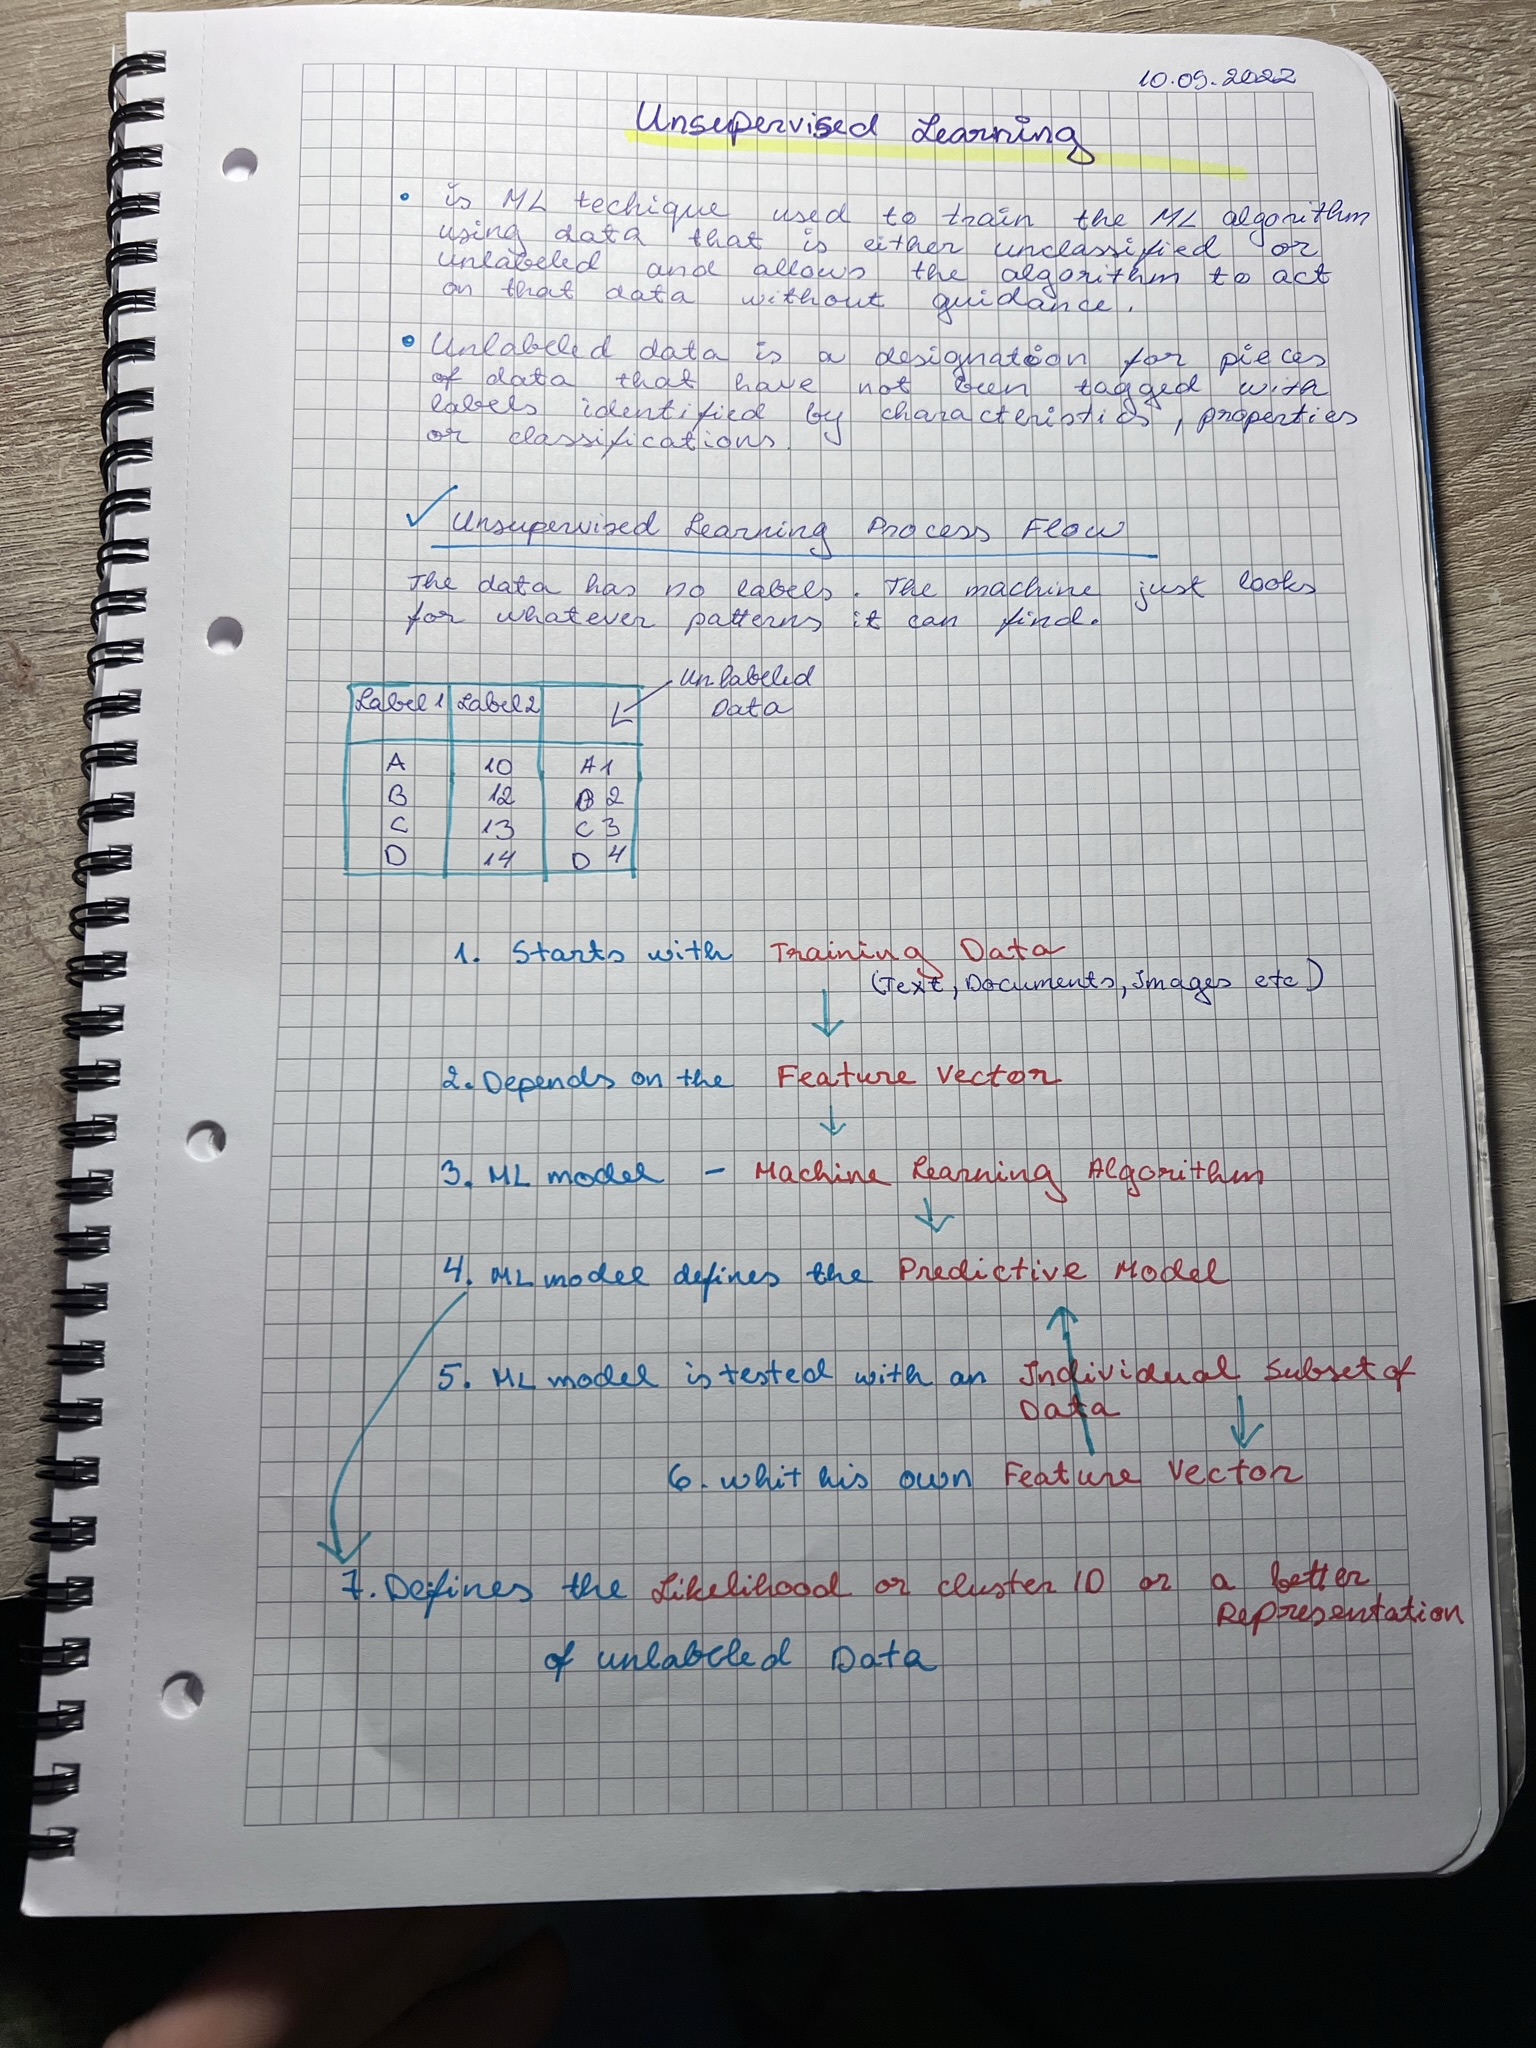 10.09.2022
Unsupervised Learning
• is ML techique used to train the ML algorithm
using data that is either unclassified or
unlabeled and allows the algorithm to act
on that data without guidance.
• Unlabeled data is a designation for pieces
of data that have not been tagged with
labels identified by characteristics, properties
or classifications.
✓ Unsupervised Learning Process Flow
The data has no labels. The machine just looks
for whatever patterns it can find.
Unlabeled
Data
Label 1 Label 2
A 10 A 1
B 12 B 2
C 13 C 3
D 14 D 4
1. Starts with Training Data
(Text, Documents, Images etc)
2. Depends on the Feature Vector
3. ML model - Machine Learning Algorithm
4. ML model defines the Predictive Model
5. ML model is tested with an Individual Subset of
Data
6. whit his own Feature Vector
7. Defines the Likelihood or cluster ID or a better
Representation
of unlabeled Data